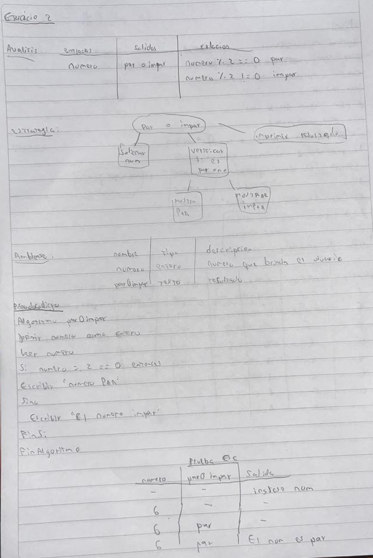 Ejercicio 2
Analisis entradas salidas relacion
numero par o impar numero % 2 == 0 par
numero % 2 != 0 impar
estrategia:
Par o impar
imprimir resultado
Solicitar num
verificar si es par
mostrar Par
mostrar impar
Ambiente: nombre tipo descripcion
numero entero numero que brinda el usuario
parOimpar resultado
Pseudocodigo
Algoritmo parOimpar
Definir numero como entero
Leer numero
Si numero % 2 == 0 entonces
Escribir "numero Par"
Sino
Escribir "El numero impar"
FinSi
FinAlgoritmo
Prueba de
numero parO impar Salida
- - ingrese num
6 - -
6 par -
6 par El num es par